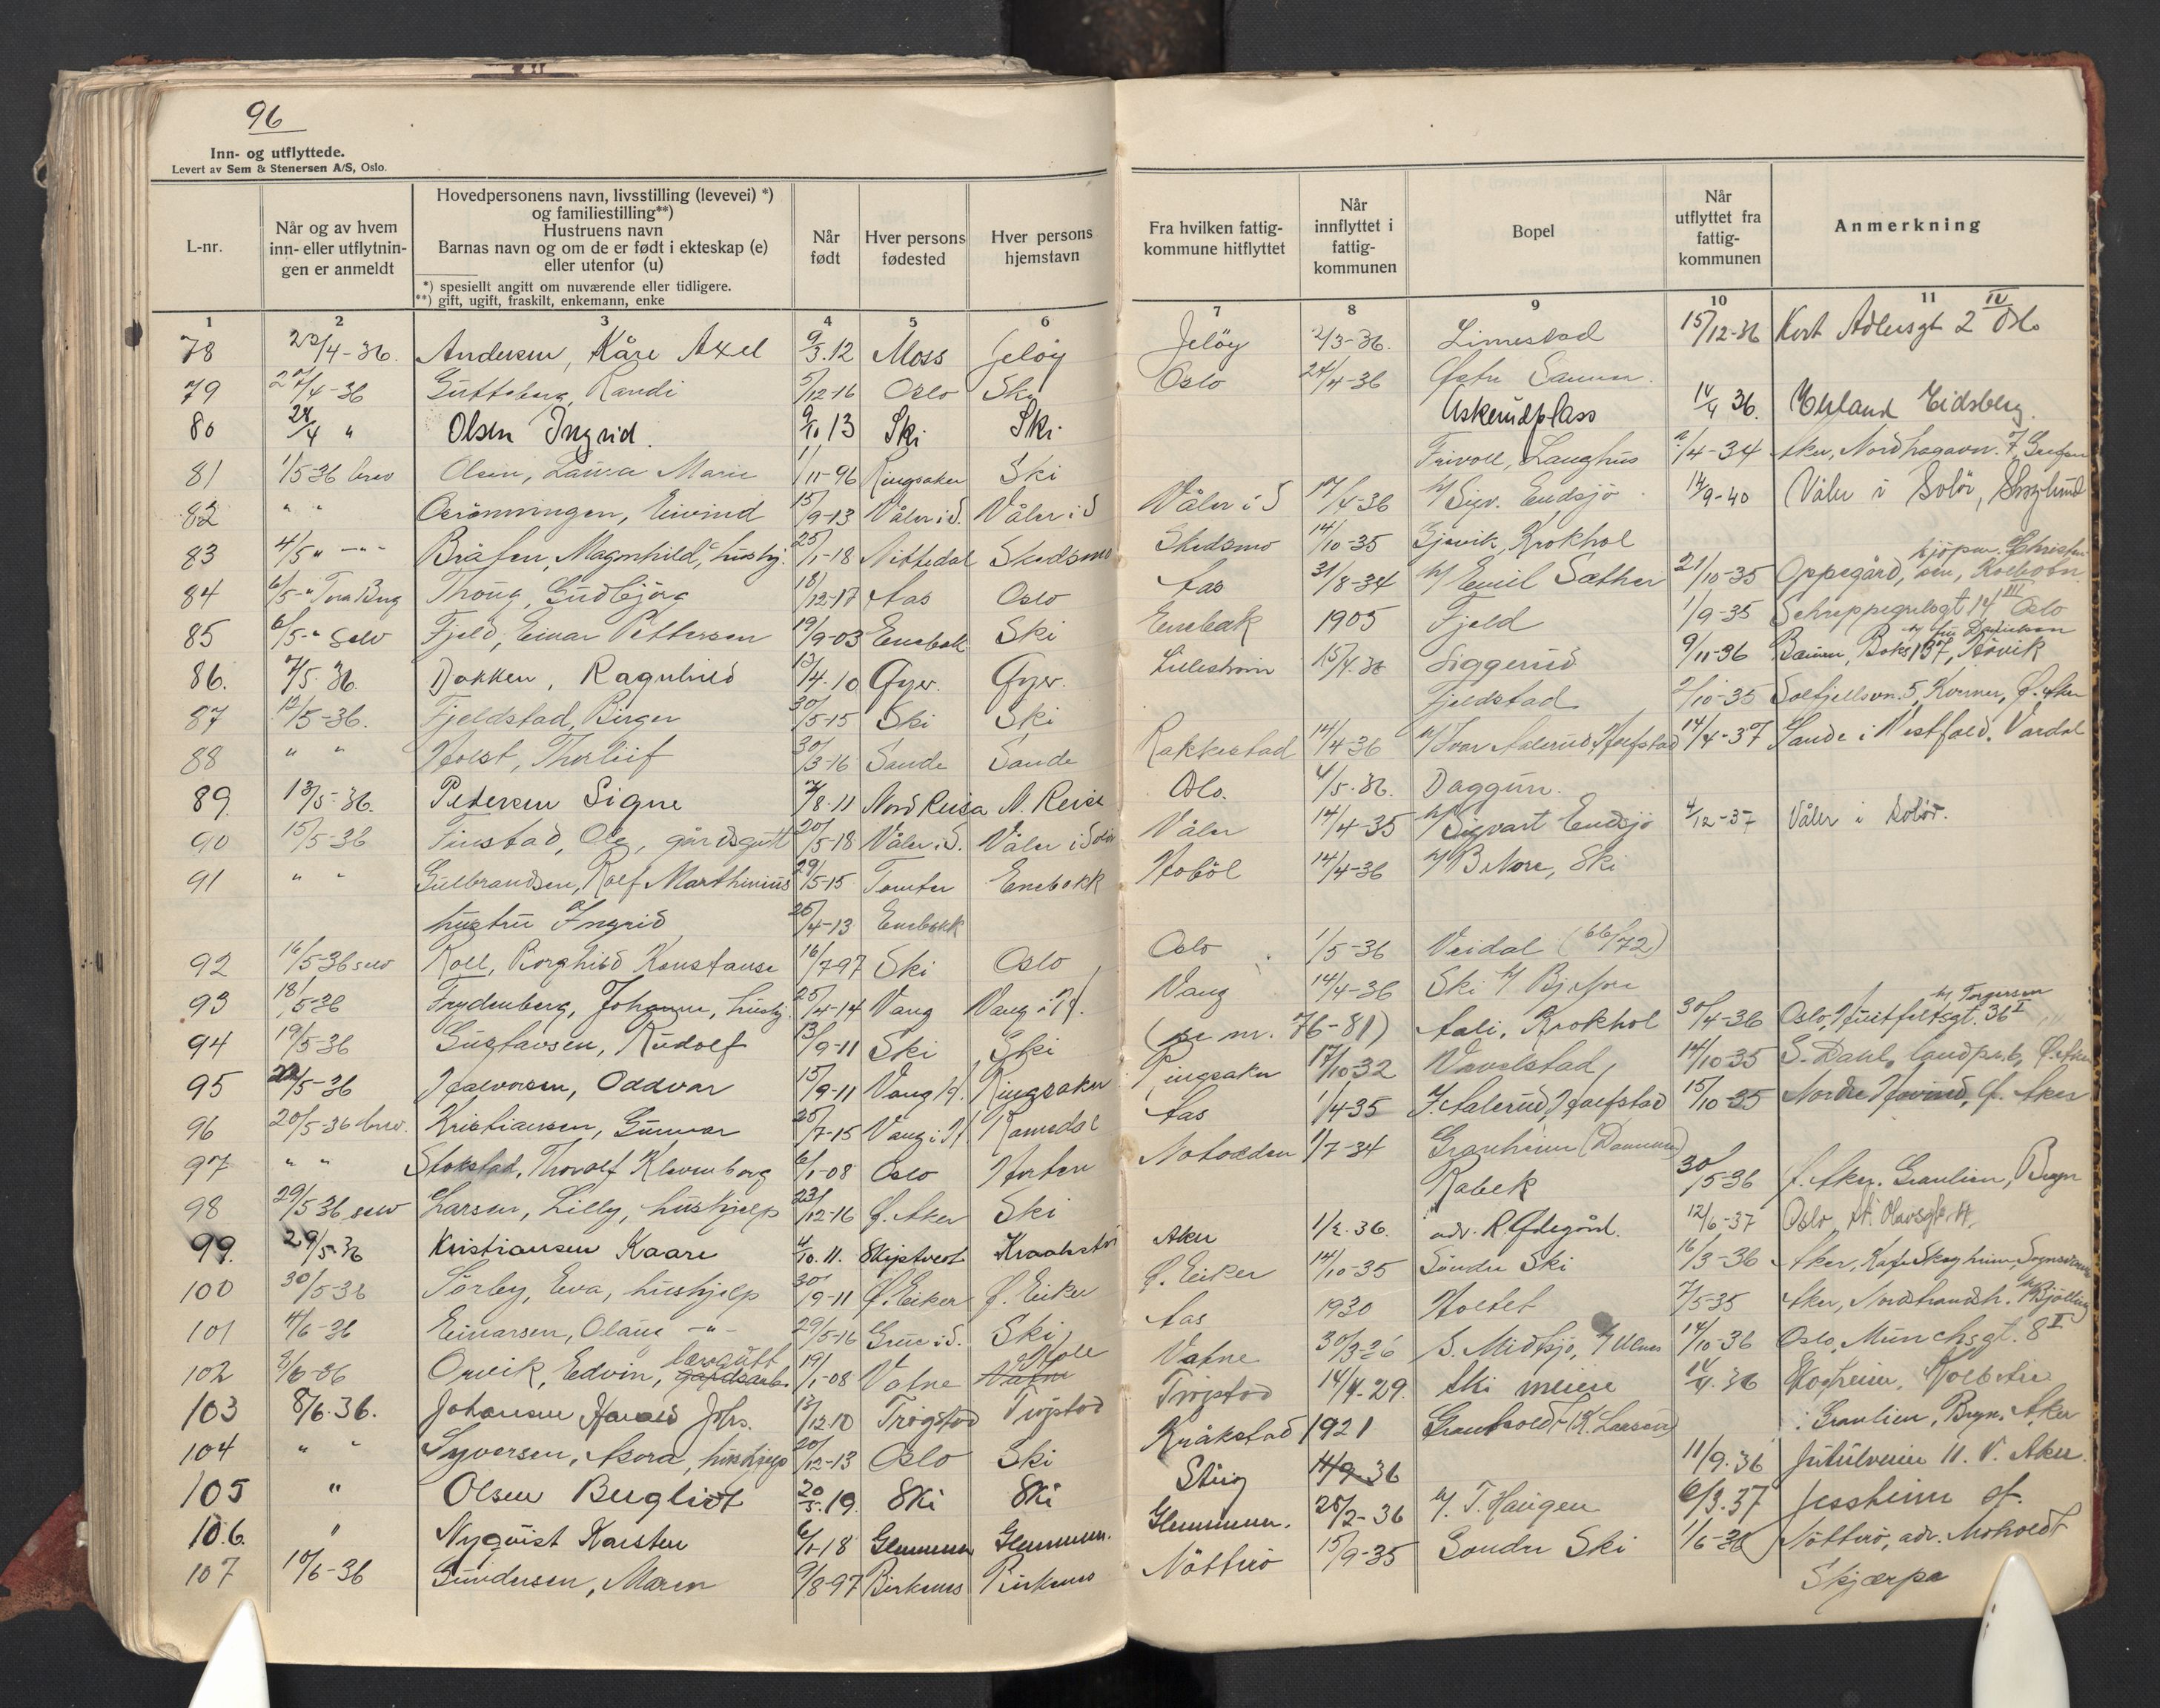 96
Inn- og utflyttede.
Levert av Sem & Stenersen A/S, Oslo.
L-nr.
Når og av hvem
inn- eller utflytnin-
gen er anmeldt
Hovedpersonens navn, livsstilling (levevei) *)
og familiestilling**)
Hustruens navn
Barnas navn og om de er født i ekteskap (e)
eller utenfor (u)
*) spesiellt angitt om nuværende eller tidligere.
**) gift, ugift, fraskilt, enkemann, enke
Når
født
Hver persons
fødested
Hver persons
hjemstavn
Fra hvilken fattig-
kommune hitflyttet
Når
innflyttet i
fattig-
kommunen
Bopel
Når
utflyttet fra
fattig-
kommunen
Anmerkning
1 2 3 4 5 6 7 8 9 10 11
78 Andersen, Kåre Axel 9/3.12 Moss Jeløy Jeløy 2/3-36. Limestad 15/12-36 Kort Adlersgt 2 IV Oslo
79 27/4-36 Randi 5/12-16 Oslo Ski Oslo 24/4-36 Østre
80 24/4 " Olsen Ingrid. 9/10 13 Ski Ski Askerudplass 14/4 36. Eidsberg.
81 1/5-36 brev Olsen, Laura Marie 1/11-96 Ringsaker Ski Frivoll, Langhus /4-34 Aker, Nordhagavn. 7
82 " " Eivind 15/9-13 Våler i S. Våler i S Våler i S 17/4-36 h/ Sigv. Endsjø 14/9-40 Våler i Solør,
83 4/5 " -"- Bråten, Magnhild, hushj. 25/1-18 Nittedal Skedsmo Skedsmo 14/10-35 Gjevik, Krokhol
84 6/5-" Thoug, Gudbjørg 18/12-17 Aas Oslo Aas 31/8-34 h/ Emil Sæther 21/10-35 Oppegård, kjøpm. Christensen, Kolbotn
85 6/5-" Selv Fjeld, Einar Pettersen 19/9-03 Enebakk Ski Enebak 1905 Fjeld 1/9-35 Schweppegrelsgt 14 III Oslo
86. 7/5-36 Dokken, Ragnhild 13/4-10 Øyer. Øyer. Lillestrøm 15/4.36 Siggerud 9/11-36 Bærum, Boks 137, Høvik
87 12/5-36. Fjeldstad, Birger 30/5-15 Ski Ski Fjeldstad /10-35 Solfjellsvn. 5, Kværner, Ø. Aker
88 " " Holst, Thorleif 30/3-16 Sande Sande Rakkestad 14/4-36 h/ Ivar Aalerud, Hafstad 14/4-37 Sande i Vestfold. Vardal
89. 13/5-36. Petersen Signe 7/8.11 Nord Reisa N. Reisa Oslo. 4/5.36. Daggun.
90 15/5-36 Finstad, Ole, gårdsgutt 20/5-18 Våler i S. Våler i Solør Våler 14/4-35 h/ Sigvart Endsjø 4/12-37 Våler i Solør.
91 " " Gulbrandsen, Rolf Marthinius 29/5-15 Tomter Enebakk Hobøl 14/4-36 h/ B. More, Ski
hustru Ingrid 25/4-13 Enebakk
92 16/5-36 selv Roll, Borghild Konstanse 16/7-97 Ski Oslo Oslo 1/5-36 Veidal (66/72)
93 18/5-36 Frydenberg, Johanne, hushj. 25/4-14 Vang Vang i H. Vang 14/4-36 Ski h/
94 19/5-36 Gustavsen, Rudolf 13/9-11 Ski Ski (se nr. 76-81) Aali, Krokhol 30/4-36 Oslo, Tuftesgt. 36 I h/ Torgersen
95 22/5-36 Halvorsen, Oddvar 15/9-11 Vang H. Ringsaker Ringsaker 17/10-32 Vevelstad 14/10-35 S. Dahl, Ø. Aker
96 20/5-36 brev. Kristiansen, Gunnar 25/7-15 Vang i H. Romedal Aas 1/4-35 I. Aalerud, Haafstad 15/10-35 Nordre Hovind, Ø. Aker
97 " " Stokstad, Thorolf Klevenberg 6/1-08 Oslo Horten Notodden 1/7-34 Granheim
98 29/5-36 selv Larsen, Lilly, hushjelp 23/12-16 Ø. Aker Ski Rabek 30/5-36 Ø. Aker. Granlien, Bryn
99. 29/5-36 Kristiansen Kaare 4/10.11. Skiptvedt Kraakstad Aker 1/2.36. adr. R. Ødegård. 12/6-37 Oslo, St. Olavsgt.
100 30/5-36 Sørby, Eva, hushjelp 30/9-11 Ø. Eiker Ø. Eiker Ø. Eiker 14/10-35 Søndre Ski 16/3-36 Aker, Kafe Skogheim, Sognsveien
101 4/6-36 Einarsen, Olaug -"- 29/5-16 Grue i S. Ski Aas 1930 Holtet 7/5-35 Aker, Nordstrandsh.
102 8/6-36 Orvik, Edvin, gardsarb. 19/1-08 Vatne Vatne Vatne 30/3-26 S. Midtsjø, h/ Ulnes 14/10-36 Oslo, Munchsgt. 8 I
103 8/6.36. Johansen Harald Johs. 13/12.10 Trøgstad Trøgstad Trøgstad 14/4.29. Ski meieri 14/4.36
104 " " Syversen, Asora, hushjelp 20/12-13 Oslo Ski Kråkstad 1921 Granholdt (K. Larsen) Granlien, Bryn, Aker
105 " Olsen Bergliot 20/5.19. Ski Ski 14/9-36 11/9.36 Jutulveien 11. V. Aker.
106. " Nyquist Karsten 6/1-18 Glemmen Glemmen. Glemmen. 25/2-36 h/. T. Haugen 6/3.37 Jessheim st.
107 10/6-36 Gundersen, Maren 9/8-97 Birkenes Birkenes Nøtterø 15/9-35 Søndre Ski 1/6-36 Nøtterø, adr.
Skjærpa